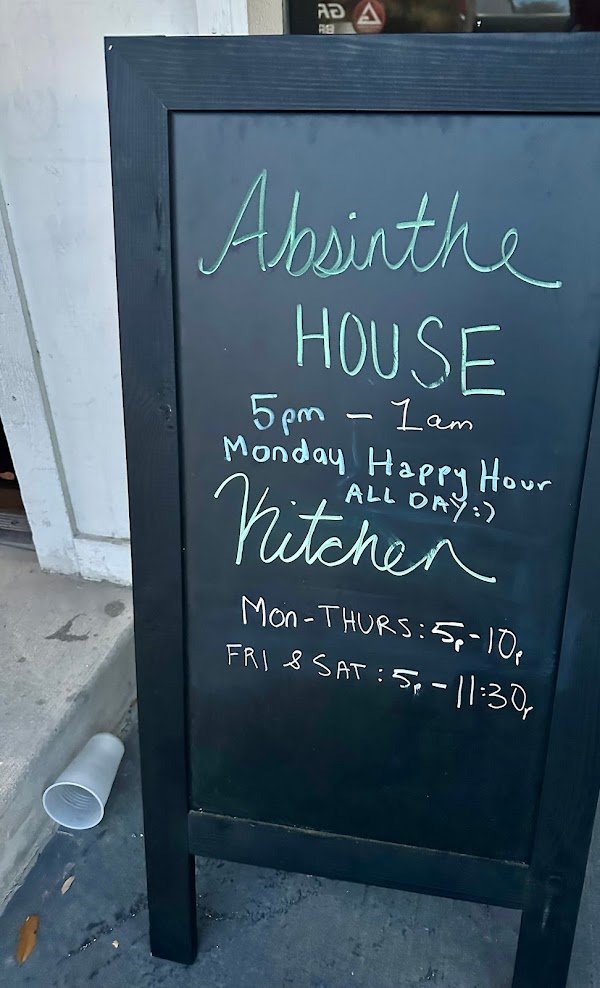 GR
Absinthe
HOUSE
5pm - 1am
Monday Happy Hour
ALL DAY :)
Kitchen
Mon-THURS: 5p-10p
FRI & SAT: 5p-11:30p